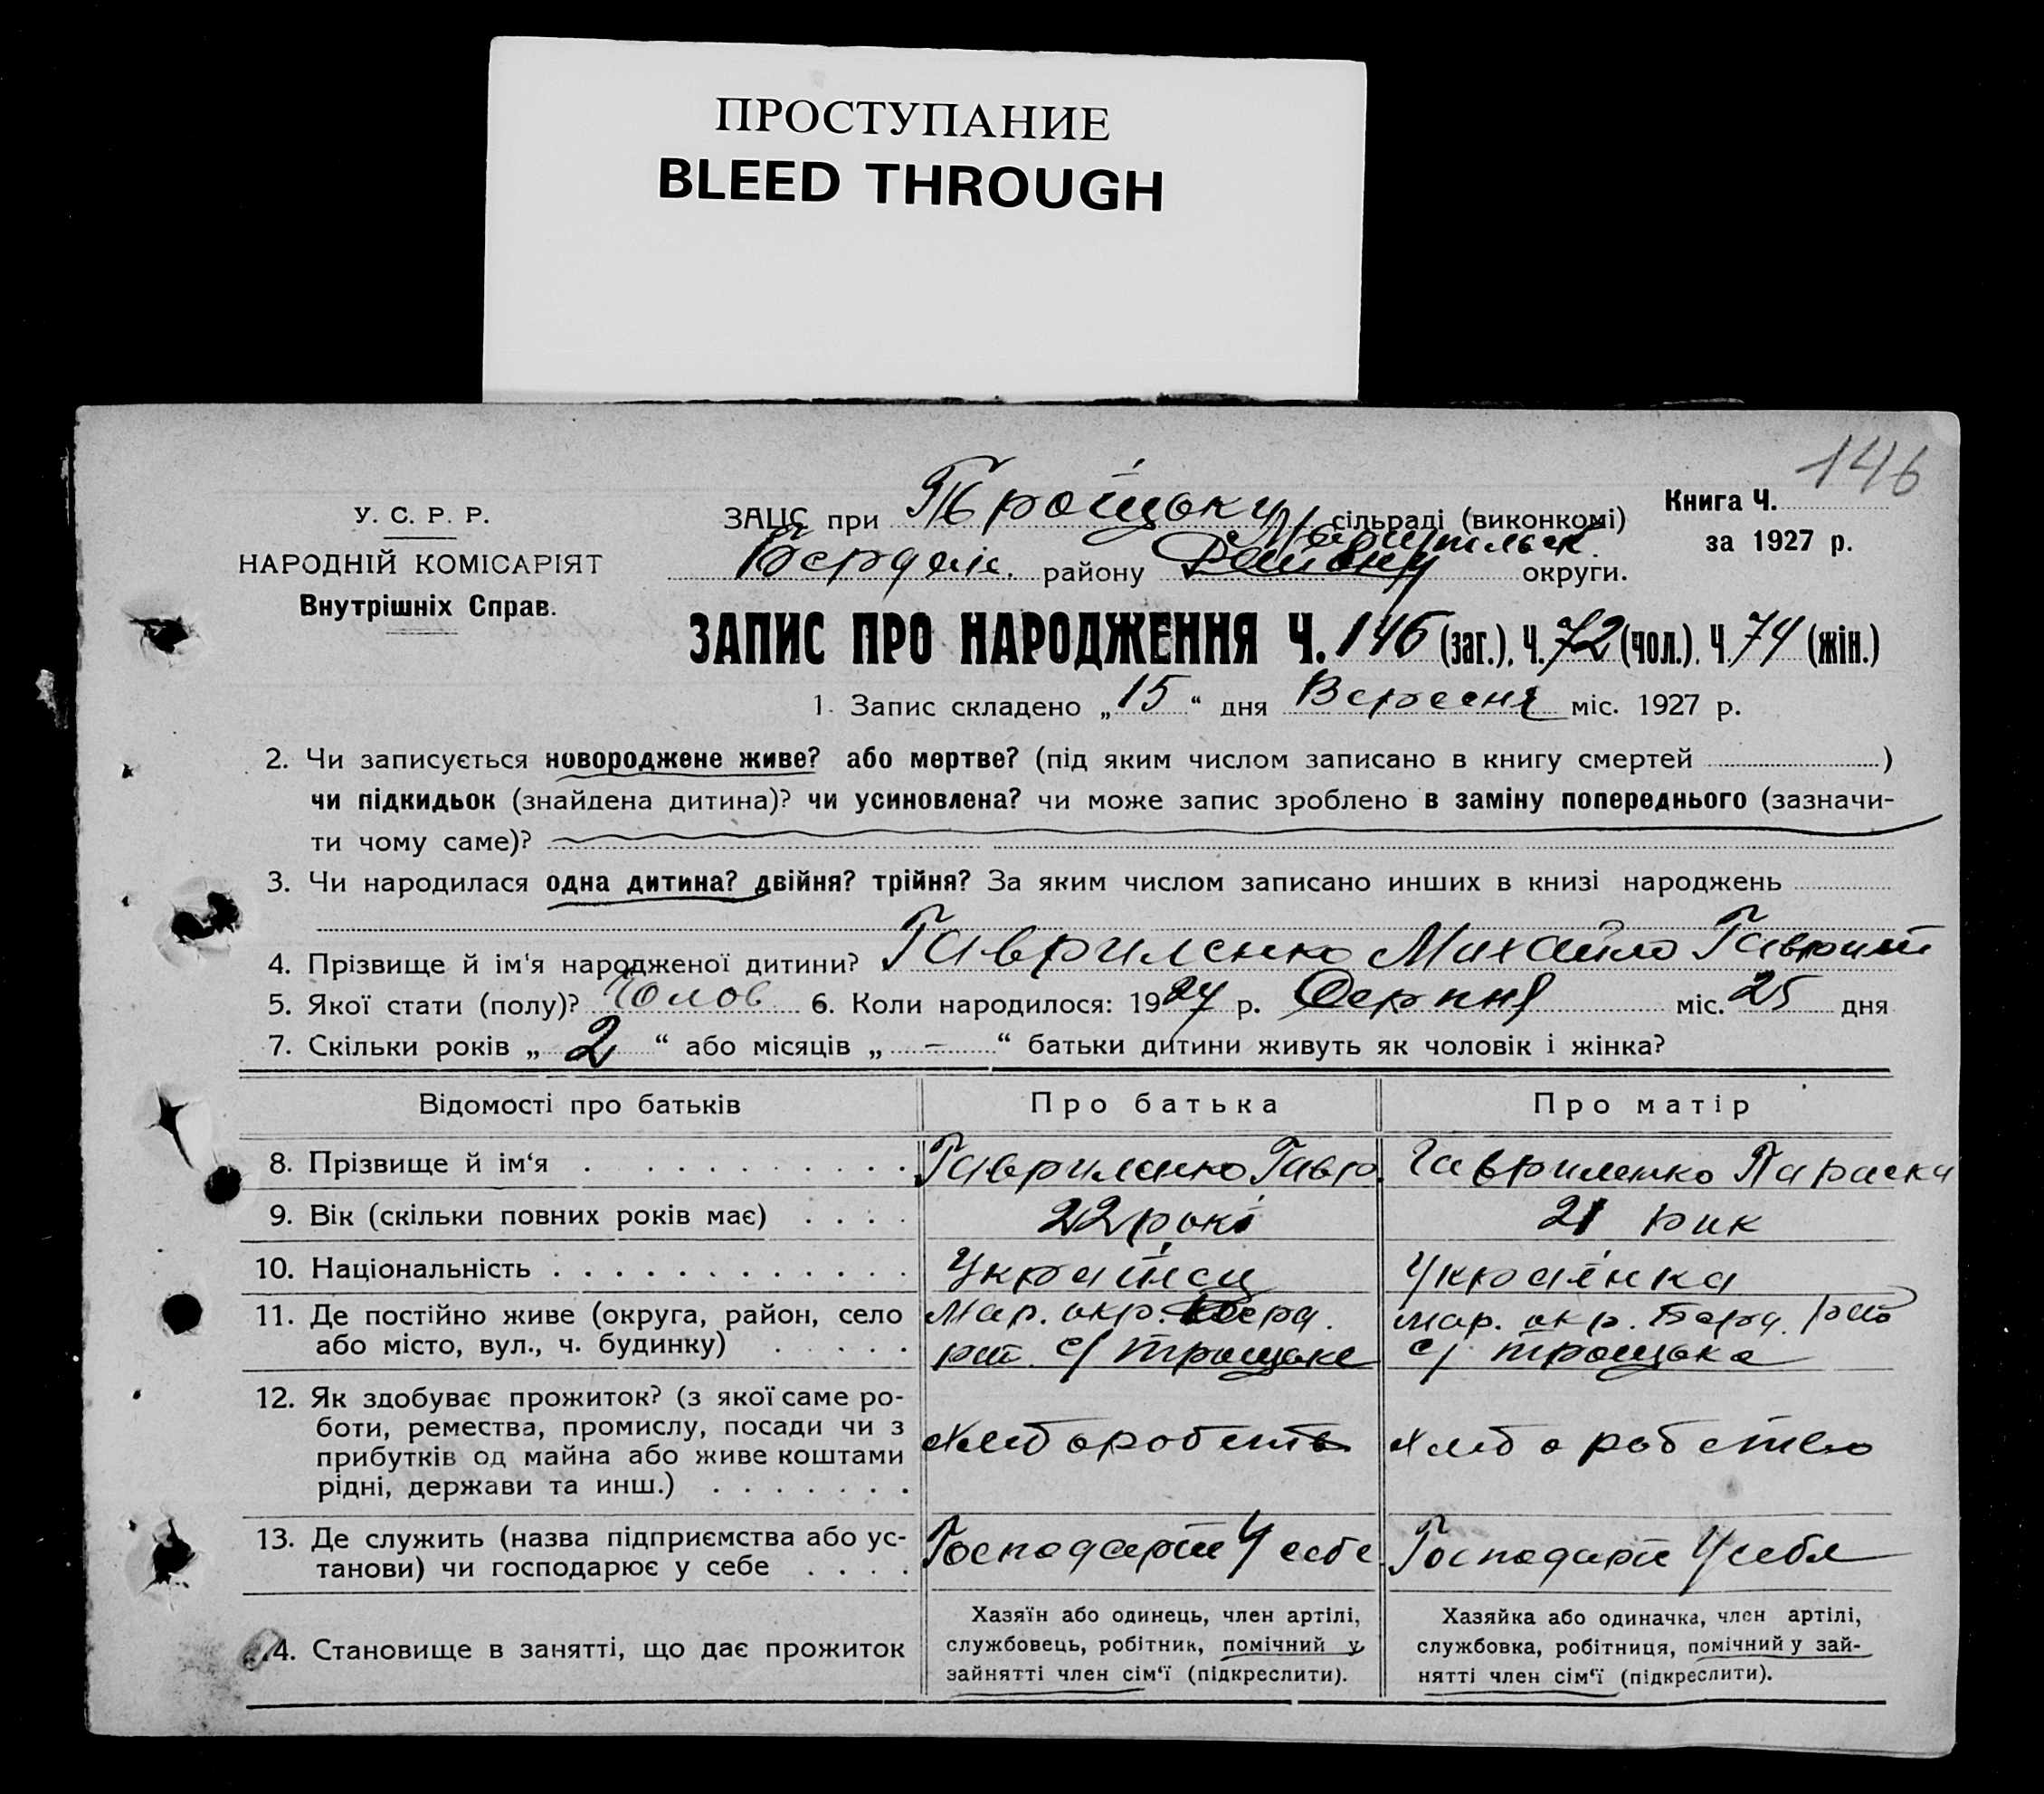 ПРОСТУПАНИЕ
BLEED THROUGH
146
У. С. Р. Р.
НАРОДНІЙ КОМІСАРІЯТ
Внутрішніх Справ.
ЗАЦС при Тройцьку сільраді (виконкомі)
Книга Ч.
за 1927 р.
Маріупільськ.
Бердян. району округи.
ЗАПИС ПРО НАРОДЖЕННЯ Ч. 146 (заг.), Ч. 72 (чол.), Ч. 74 (жін.)
1. Запис складено „15“ дня Вересня міс. 1927 р.
2. Чи записується новороджене живе? або мертве? (під яким числом записано в книгу смертей )
чи підкидьок (знайдена дитина)? чи усиновлена? чи може запис зроблено в заміну попереднього (зазначи-
ти чому саме)?
3. Чи народилася одна дитина? двійня? трійня? За яким числом записано инших в книзі народжень
4. Прізвище й ім‘я народженої дитини? Гавриленко Михайло Гаврил
5. Якої стати (полу)? Чолов 6. Коли народилося: 1927 р. Серпня міс. 25 дня
7. Скільки років „2“ або місяців „-“ батьки дитини живуть як чоловік і жінка?
Відомості про батьків Про батька Про матір
8. Прізвище й ім‘я Гавриленко Гавр. Гавриленко Параска
9. Вік (скільки повних років має) 22 рокі 21 рик
10. Національність Українец Українка
11. Де постійно живе (округа, район, село
або місто, вул., ч. будинку)
Мар. окр. Берд.
рай. с/ Троицьке
Мар. окр. Берд. рай
с/ Троицьке
12. Як здобуває прожиток? (з якої саме ро-
боти, ремества, промислу, посади чи з
прибутків од майна або живе коштами
рідні, держави та инш.)
хлебороботв хлебороботвю
13. Де служить (назва підприємства або ус-
танови) чи господарює у себе
Господарие У себе Господарие У себя
14. Становище в занятті, що дає прожиток
Хазяїн або одинець, член артілі,
службовець, робітник, помічний у
зайнятті член сім‘ї (підкреслити).
Хазяйка або одиначка, член артілі,
службовка, робітниця, помічний у зай-
нятті член сім‘ї (підкреслити).